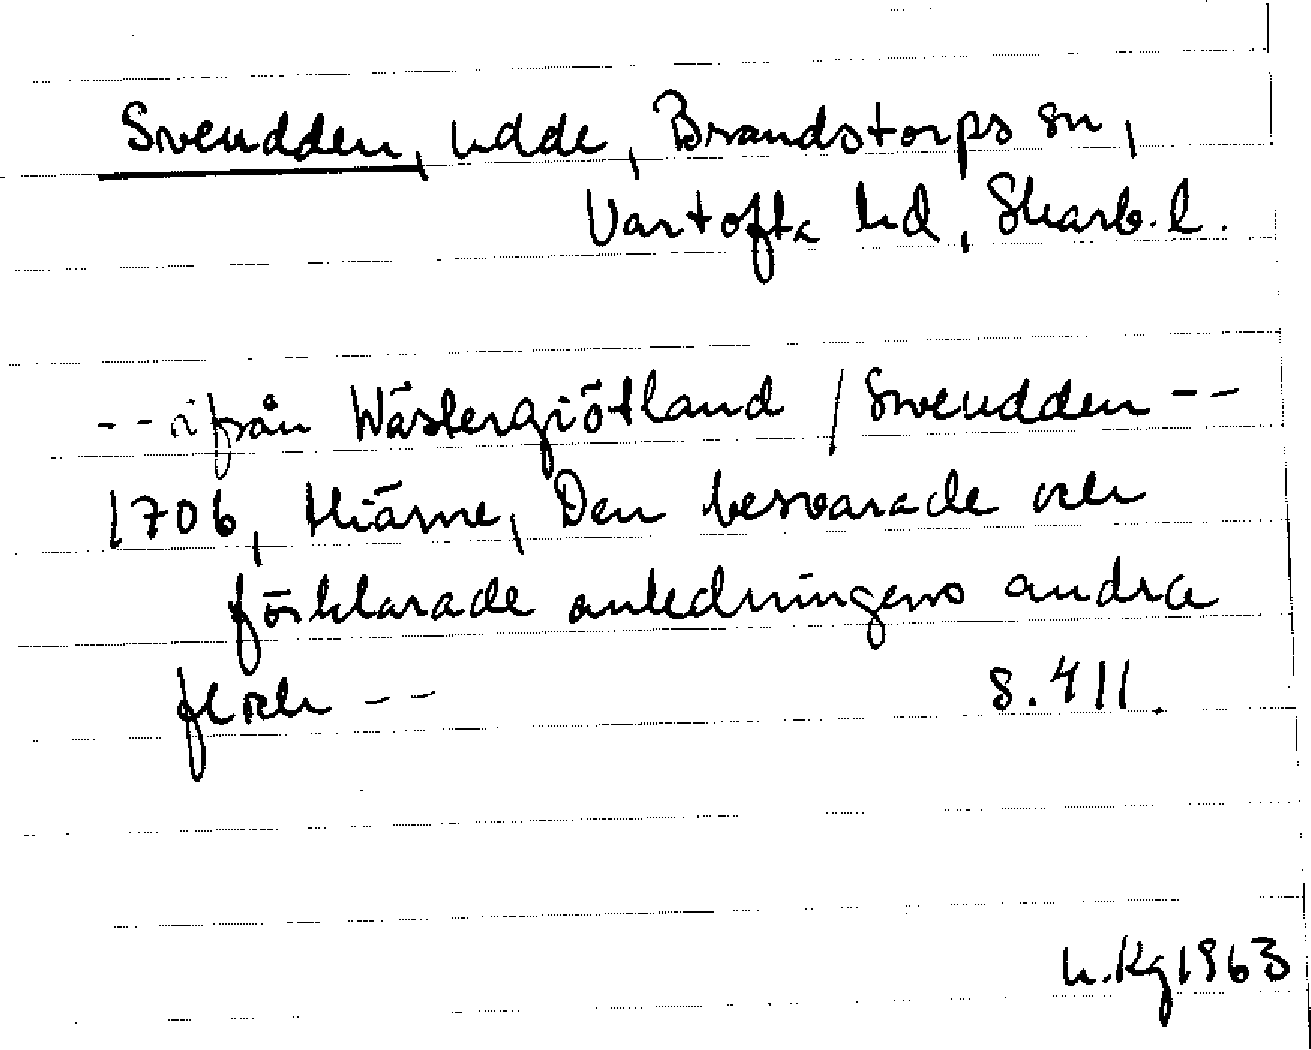 Sveudden, udde, Brandstorps sn,
Vartofta hd, Skarb. l.
-- ifrån Wästergiötland / Sweudden --
1706, Hiärne, Den besvarade och
förklarade anledningens andra
flock -- s. 411.
h. Kg 1963